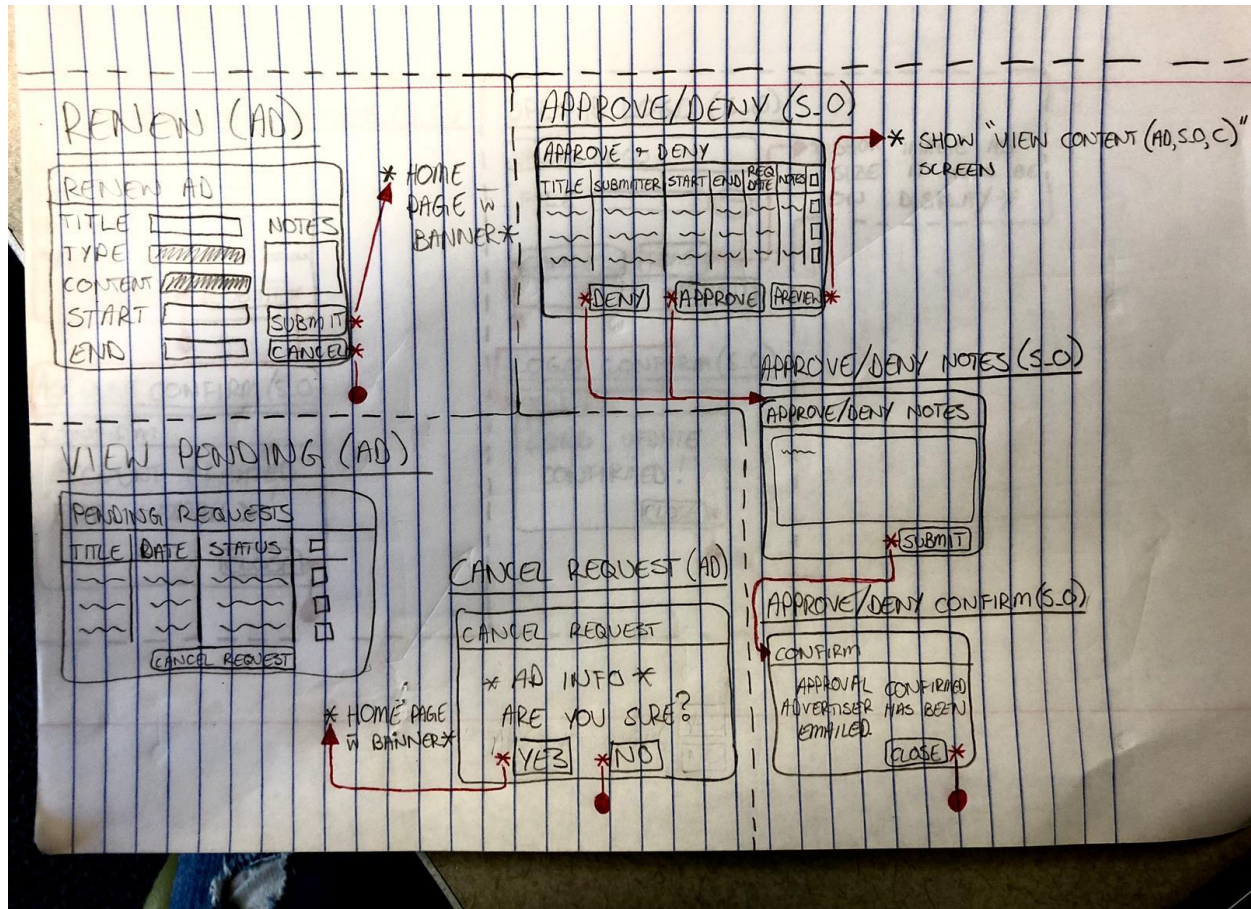 RENEW (AD)
RENEW AD
TITLE
TYPE
CONTENT
START
END
NOTES
SUBMIT
CANCEL
* HOME
PAGE W
BANNER*
APPROVE/DENY (S_O)
APPROVE & DENY
TITLE SUBMITTER START END REQ DATE NOTES
DENY APPROVE PREVIEW
* SHOW "VIEW CONTENT (AD, S_O, C)"
SCREEN
APPROVE/DENY NOTES (S_O)
APPROVE/DENY NOTES
SUBMIT
APPROVE/DENY CONFIRM (S_O)
CONFIRM
APPROVAL CONFIRMED
ADVERTISER HAS BEEN
EMAILED.
CLOSE
VIEW PENDING (AD)
PENDING REQUESTS
TITLE DATE STATUS
CANCEL REQUEST
CANCEL REQUEST (AD)
CANCEL REQUEST
* AD INFO *
ARE YOU SURE?
YES NO
* HOME PAGE
W BANNER*